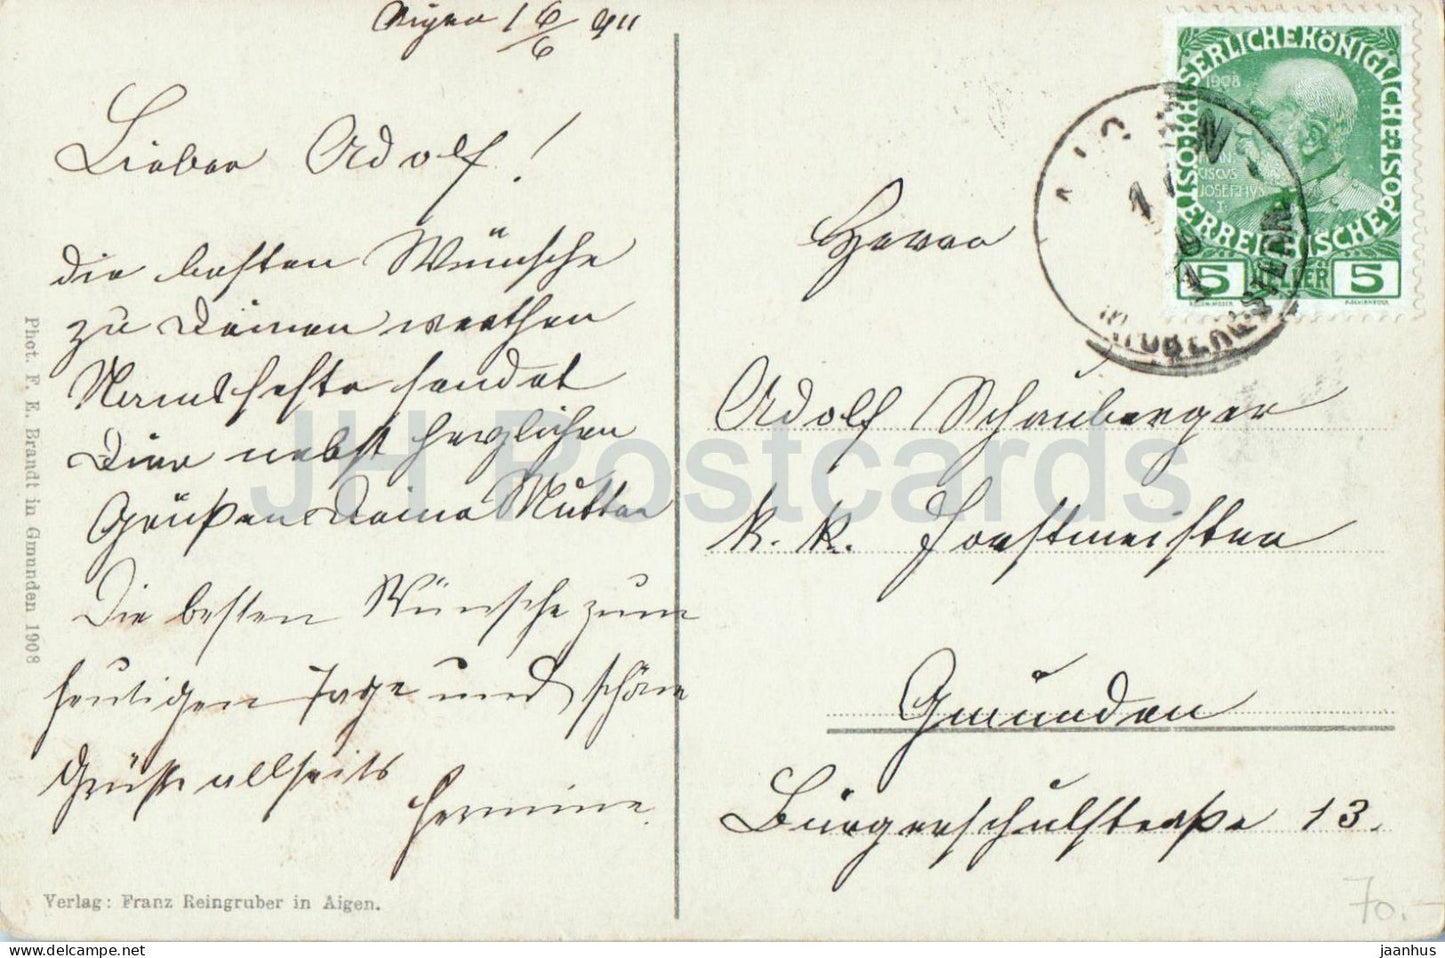 Aigen 16/6 911
Lieber Adolf!
die besten Wünsche
zu Deinem werthen
Namensfeste sendet
Dir nebst herzlichen
Grüßen Deine Mutter
Die besten Wünsche zum
heutigen Tage und schöne
Grüße allseits
Hermine.
Verlag: Franz Reingruber in Aigen.
Phot. F. E. Brandt in Gmunden 1908
KAISERLICHE KÖNIGLICHE
ÖSTERREICHISCHE POST
1908
FRAN
CISCVS
JOSEPHVS
I.
5 HELLER 5
AIGEN
Herrn
Adolf Schauberger
k. k. Forstmeister
Gmunden
Bürgerschulstraße 13.
70.-
JH Postcards
jaanhus @ delcampe.net